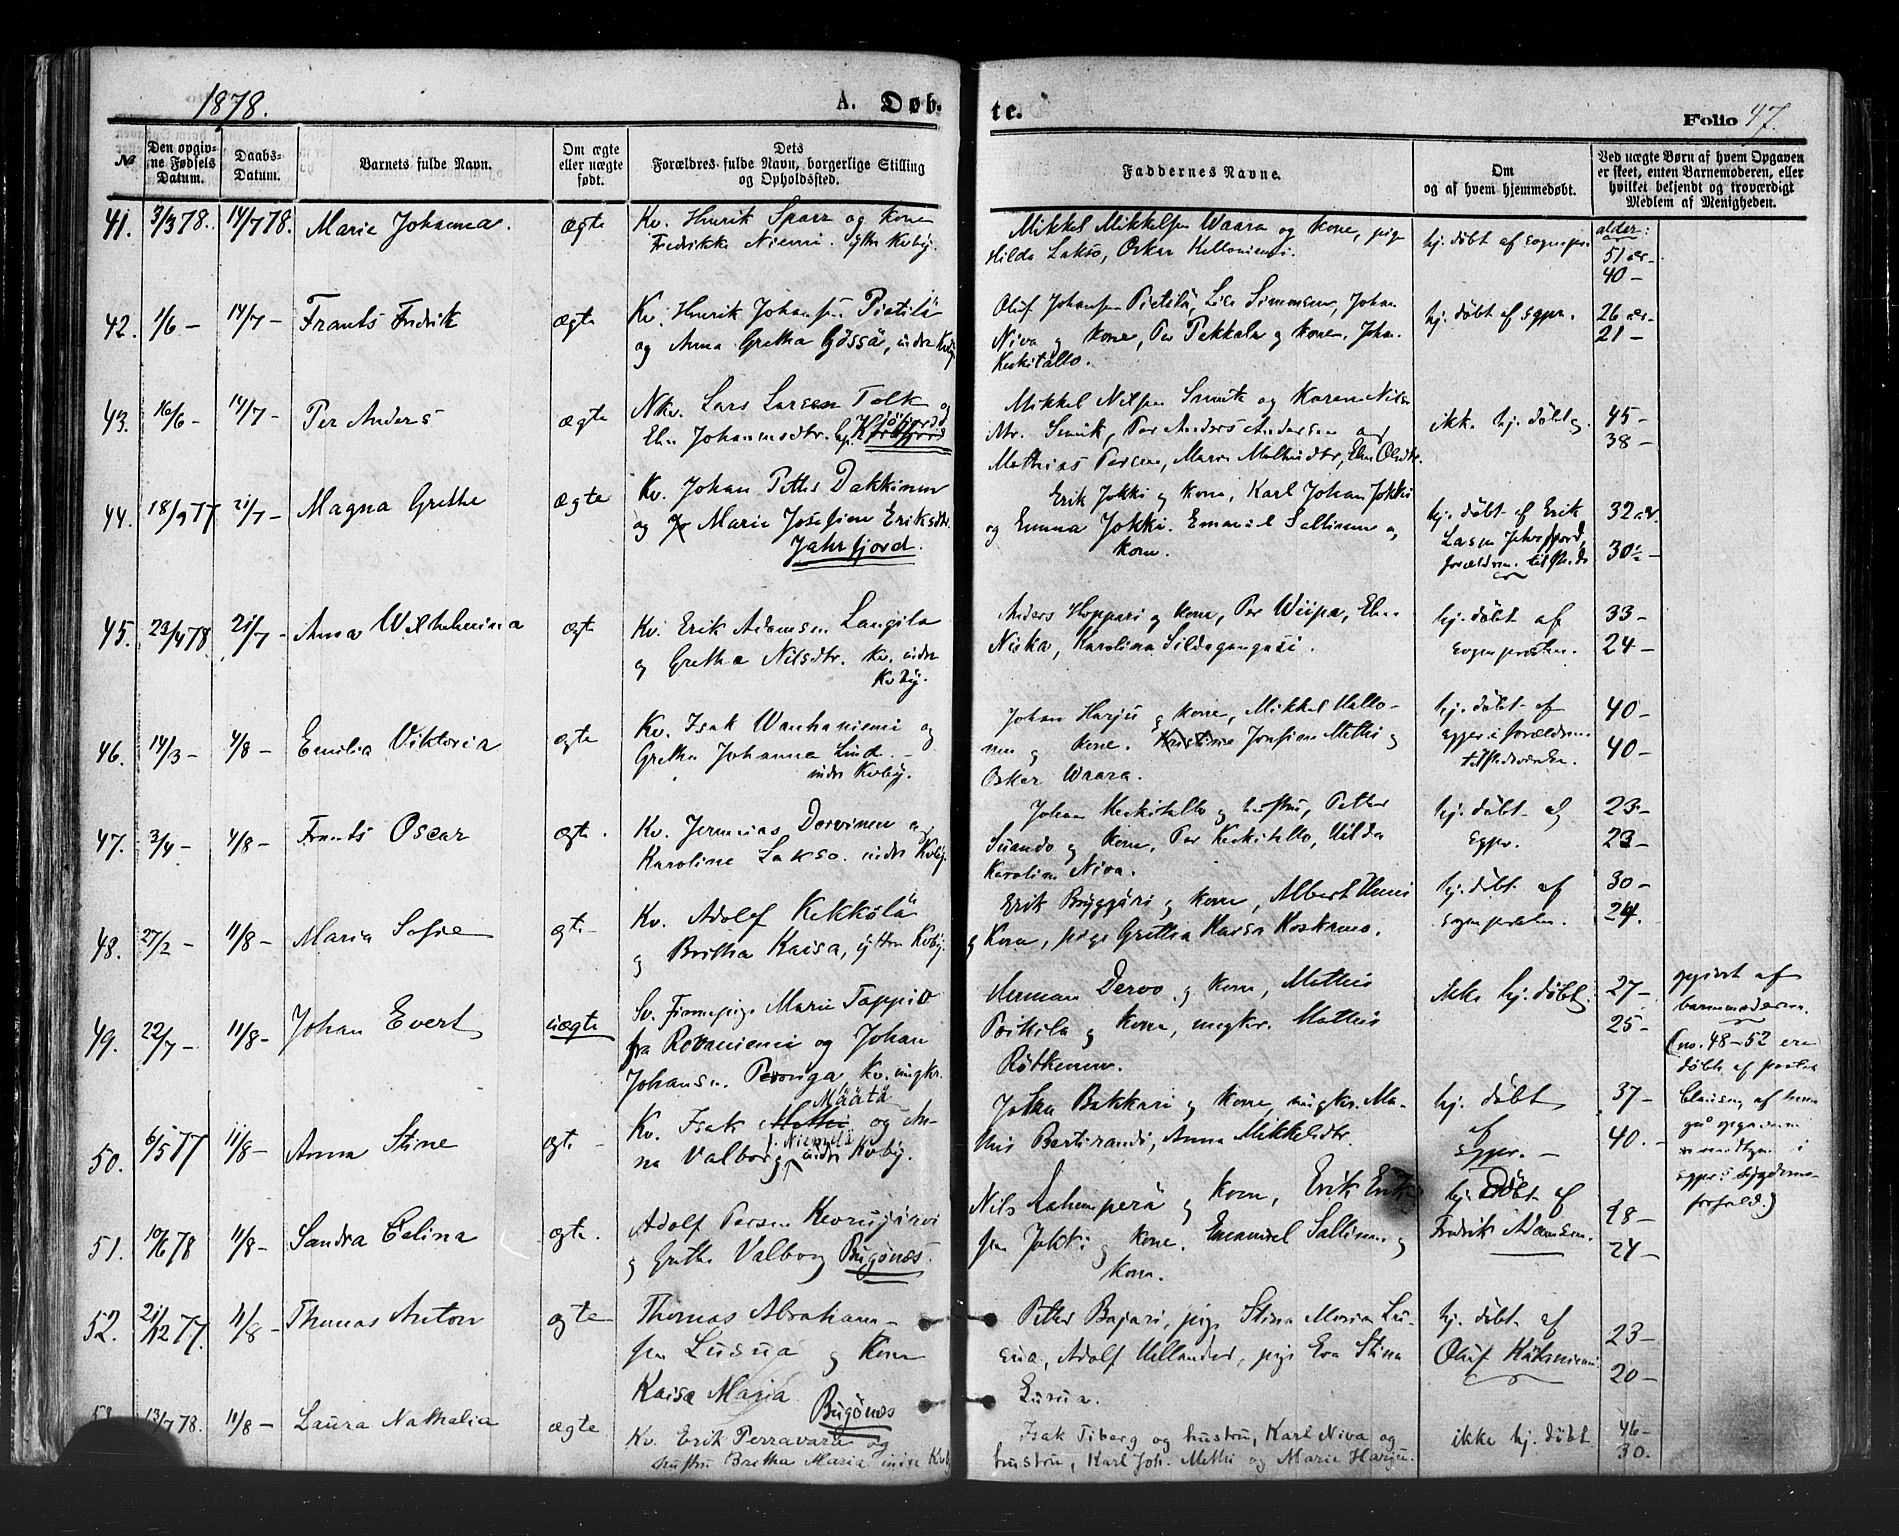 1878.
A. Døb.
№
Den opgiv-
ne Fødsels
Datum.
Daabs-
Datum.
Barnets fulde Navn.
Om ægte
eller uægte
født.
Dets
Forældres fulde Navn, borgerlige Stilling
og Opholdssted.
41. 3/3 78. 14/7 78. Marie Johanna. ægte
Kv. Henrik Sparr og kone
Fredrikke Niemi. yttre Kvby.
42. 1/6 — 14/7 — Frants Fredrik ægte
Kv. Henrik Johansen Pietilä
og Anna Gretha Gössä, indre Kvby.
43. 16/6 — 14/7 — Per Anders ægte
Nkv. Lars Larsen Tolk og
Elen Johannesdtr.
44. 18/9 77 21/7 — Magna Grethe ægte
Kv. Johan Petter Dakkinen
og Marie Josefine Eriksdtr.
Jahrfjord.
45. 23/4 78 21/7 — Anna Wilhelmina ægte
Kv. Erik Adamsen Langila
og Gretha Nilsdtr. Kv. indre
Kvby.
46. 14/3 — 4/8 — Emilia Viktoria ægte
Kv. Isak Wanhaniemi og
Gretha Johanna Lind.
indre Kvby.
47. 3/4 — 4/8 — Frants Oscar ægte.
Kv. Jermias Dervinen og
Karoline Lakso. indre Kvby.
48. 27/2 — 11/8 — Maria Sofie ægte
Kv. Adolf Kekkölä
og Britha Kaisa, yttre Kvby.
49. 22/7 — 11/8 — Johan Evert uægte
Sv. Finnepige Marie Tappio
fra Rovaniemi og Johan
Johansn. Peronga Kv. ungkr.
50. 6/5 77 11/8 — Anna Stine ægte
Määtä
Kv. Isak Mathi og An-
f. Niemelä
na Valborg, indre Kvby.
51. 10/6 78 11/8 — Sandra Celina ægte.
Adolf Persen Kevrujärvi
og Grethe Valborg Bugönæs.
52. 21/12 77. 11/8 — Thomas Anton ægte
Thomas Abraham-
sen Lusua og Kone
Kaisa Maria
Bugönæs
53. 13/7 78. 11/8 — Laura Nathalia ægte
Kv. Erik Perravara og
hustru Bretha Maria indre Kvby
te.
Folio 47.
Faddernes Navne.
Om
og af hvem hjemmedøbt.
Ved uægte Børn af hvem Opgaven
er skeet, enten Barnemoderen, eller
hvilket bekjendt og troværdigt
Medlem af Menigheden.
alder:
Mikkel Mikkelsen Waara og kone, pige
Hilda Lakso, Oskar Kellonimi.
hj. døbt af sognepr.
51 år —
40 —
Oluf Johansen Pietilä, Lise Simonsen, Johan
Niva og kone, Per Pekkala og kone, Johan
Keskitallo.
hj. døbt af sgpr.
26 år —
21 —
Mikkel Nilsen Smuk og Karen Nils-
dtr. Smuk, Per Anders Andersen og
Mathias Persen, Maren Mathisdtr, Elen Olsdtr.
ikke hj. døbt.
45 —
38 —
Erik Jokki og kone, Karl Johan Jokki
og Emma Jokki. Emanuel Sallinen og
kone.
hj. døbt af Erik
Lassen Jahrfjord,
forældrene tilstede
32 år.
30 ½ —
Anders Hoppari og kone, Per Wiipa, Elen
Niska, Karolina Sildagangasi.
hj. døbt af
sognepresten.
33 —
24 —
Johan Harju og kone, Mikkel Kello-
nen og kone. Kristine Josefine Mathi og
Oskar Waara.
hj. døbt af
sgpr. i forældren.
tilstedeværelse.
40 —
40 —
Johan Keskitallo og hustru, Petter
Suando og kone, Per Keskitallo, Hilda
Karolina Niva.
hj. døbt af
sgpr.
23 —
23 —
Erik Bryggjäri og kone, Albert Uusi
og Kone, pige Gretha Kaisa Koskamo.
hj. døbt af
sognepresten.
30 —
24.
Herman Dervo og kone, Mathis
Poikila og kone, ungkr. Mathis
Rötkönen.
ikke hj. døbt.
27 —
25 —
opgivet af
barnemoderen.
(no. 48-52 ere
døbte af pastor
Clausen, af ham
Johan Bakkari og kone, ungkr. Ma-
this Bertirandi, Anna Mikkelsdtr.
hj. døbt
af
sgpr. —
37 —
40. —
sgprs sygdoms-
forfald.)
Nils Lahenperä og kone, Erik Erik-
sen Jokki og kone. Emanuel Sallinen og
kone.
hj. døbt af
Fredrik Adamsen.
28 —
24 —
Petter Bajari, pige Stina Maria Lu-
sua, Adolf Hellander, pige Eva Stina
Lusua.
hj. døbt af
Oluf Kätsnivuni
23 —
20 —
Isak Tiberg og hustru, Karl Niva og
hustru, Karl Joh. Mathi og Marie Harju.
ikke hj. døbt
46 —
30.